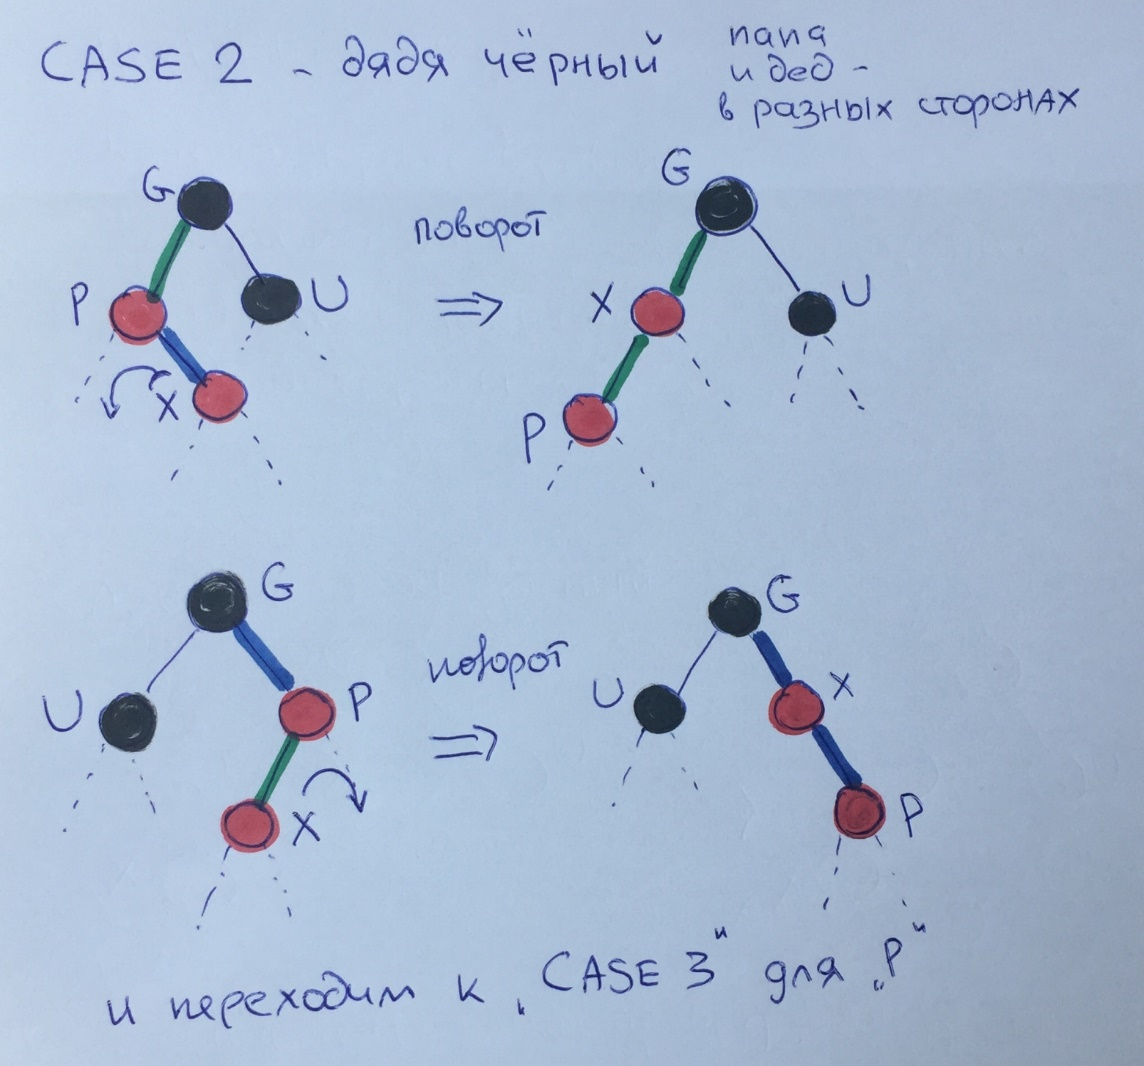 CASE 2 - дядя чёрный
папа
и дед -
в разных сторонах
G
P
U
X
поворот
⇒
G
X
U
P
G
U
P
X
поворот
⇒
G
U
X
P
и переходим к „CASE 3" для „P"